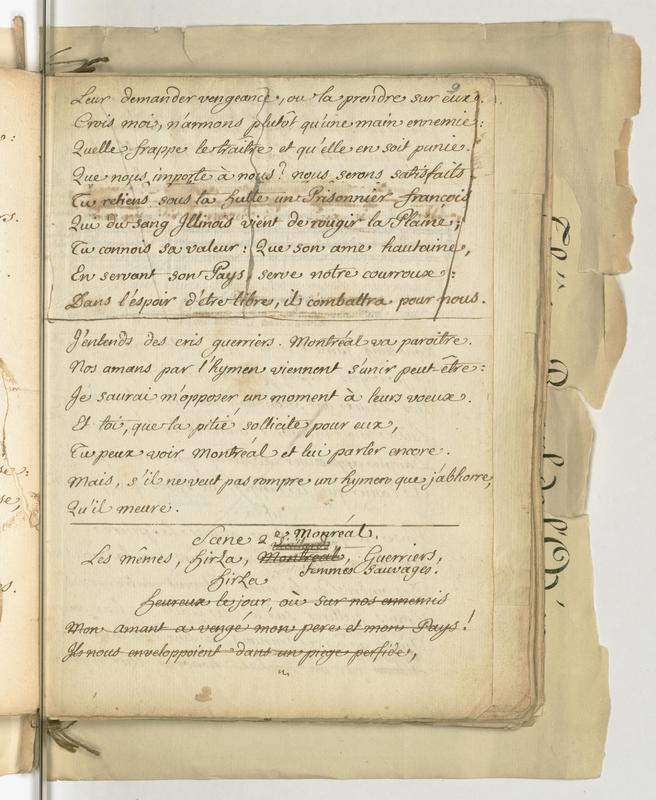 9
Leur demander vengeance, ou la prendre sur eux.
Crois moi, n'armons plutôt qu'une main ennemie:
Quelle frappe le traître et qu'elle en soit punie.
Que nous importe à nous? nous serons satisfaits.
Tu retiens sous ta hutte un Prisonnier françois
Qui du sang Illinois vient de rougir la Plaine;
Tu connois sa valeur: Que son ame hautaine,
En servant son Pays, serve notre courroux:
Dans l'espoir d'être libre, il combattra pour nous.
J'entends des cris guerriers. Montréal va paroître.
Nos amans par l'hymen viennent s'unir peut-être:
Je saurai m'opposer un moment à leurs voeux.
Et toi, que la pitié sollicite pour eux,
Tu peux voir Montréal et lui parler encore.
Mais, s'il ne veut pas rompre un hymen que j'abhorre,
Qu'il meure.
Scene 2e Montréal,
Les mêmes, hirza, Montréal, Guerriers,
femmes Sauvages.
hirza
heureux le jour, où sur nos ennemis
Mon amant a vengé mon pere et mon Pays!
Ils nous enveloppoient dans un piege perfide,